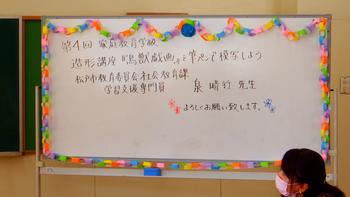 第4回 家庭教育学級
造形講座『鳥獣戯画』を筆ペンで模写しよう
松戸市教育委員会社会教育課
学習支援専門員 泉 晴行 先生
よろしくお願い致します。